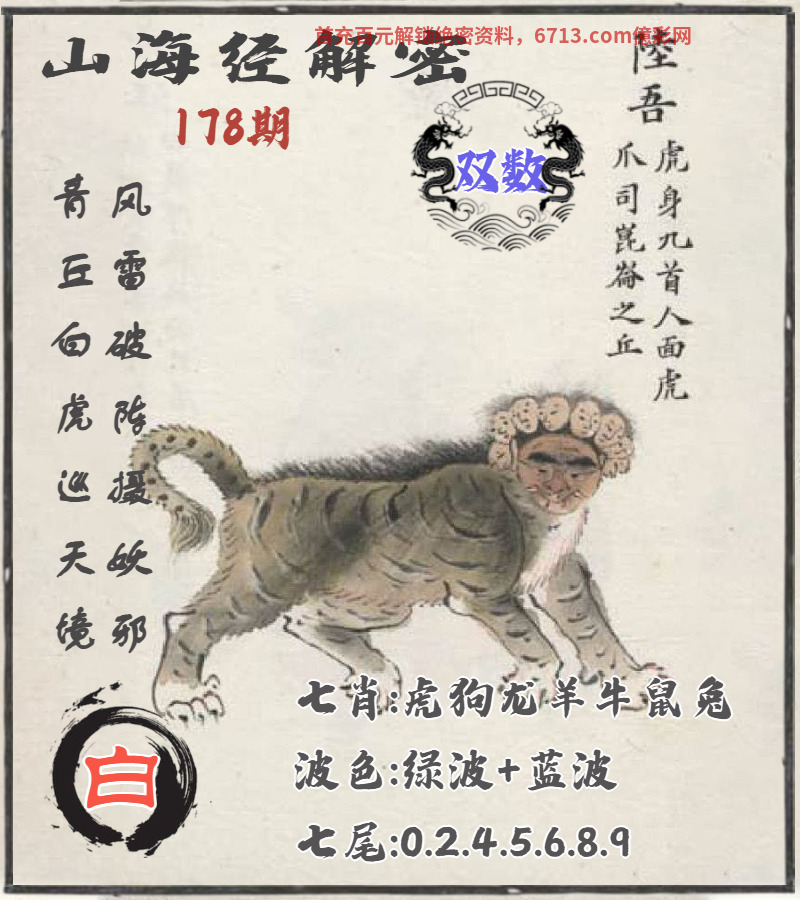 首充百元解锁绝密资料，6713.com億彩网
山海经解密
178期
双数
陸吾
虎身九首人面虎
爪司崑崙之丘
风雷破阵摄妖邪
青丘白虎巡天境
七肖:虎狗龙羊牛鼠兔
白
波色:绿波+蓝波
七尾:0.2.4.5.6.8.9